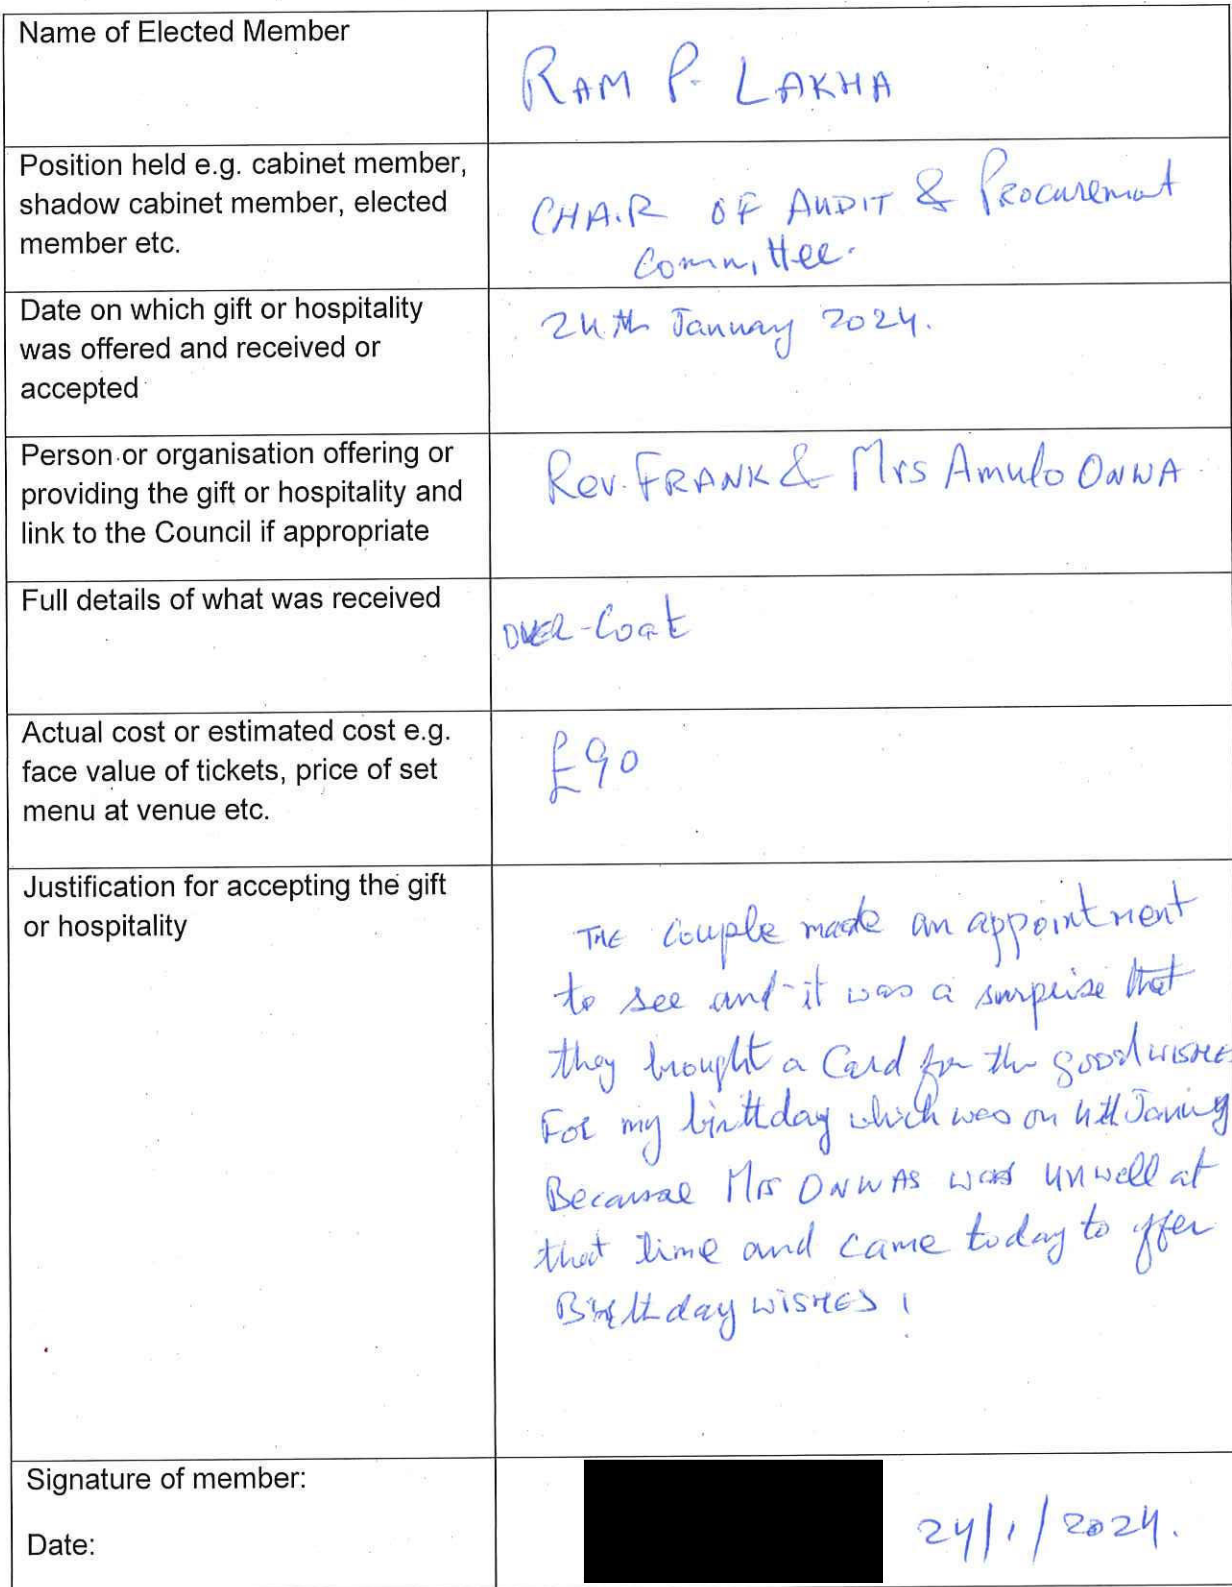 Name of Elected Member
RAM P. LAKHA
Position held e.g. cabinet member,
shadow cabinet member, elected
member etc.
CHAIR OF AUDIT & Procurement
Committee.
Date on which gift or hospitality
was offered and received or
accepted
24th January 2024.
Person or organisation offering or
providing the gift or hospitality and
link to the Council if appropriate
Rev. FRANK & Mrs Amulo ONWA
Full details of what was received
OVER-Coat
Actual cost or estimated cost e.g.
face value of tickets, price of set
menu at venue etc.
£90
Justification for accepting the gift
or hospitality
THE Couple made an appointment
to see and it was a surprise that
they brought a Card for the good WISHES
For my birthday which was on 4th January
Because Mrs ONWAS was unwell at
that time and came today to offer
Birthday WISHES !
Signature of member:
Date:
24/1/2024.